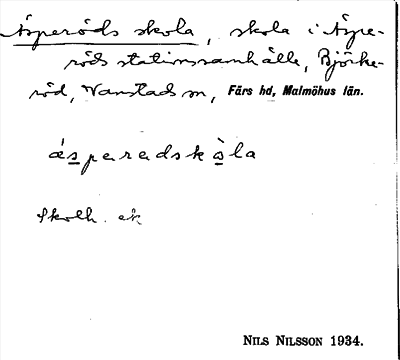 Äsperöds skola, skola i Äspe-
röds stationssamhälle, Björke-
röd, Vanstads sn, Färs hd, Malmöhus län.
ásperedskòla
Skolh. ek
NILS NILSSON 1934.